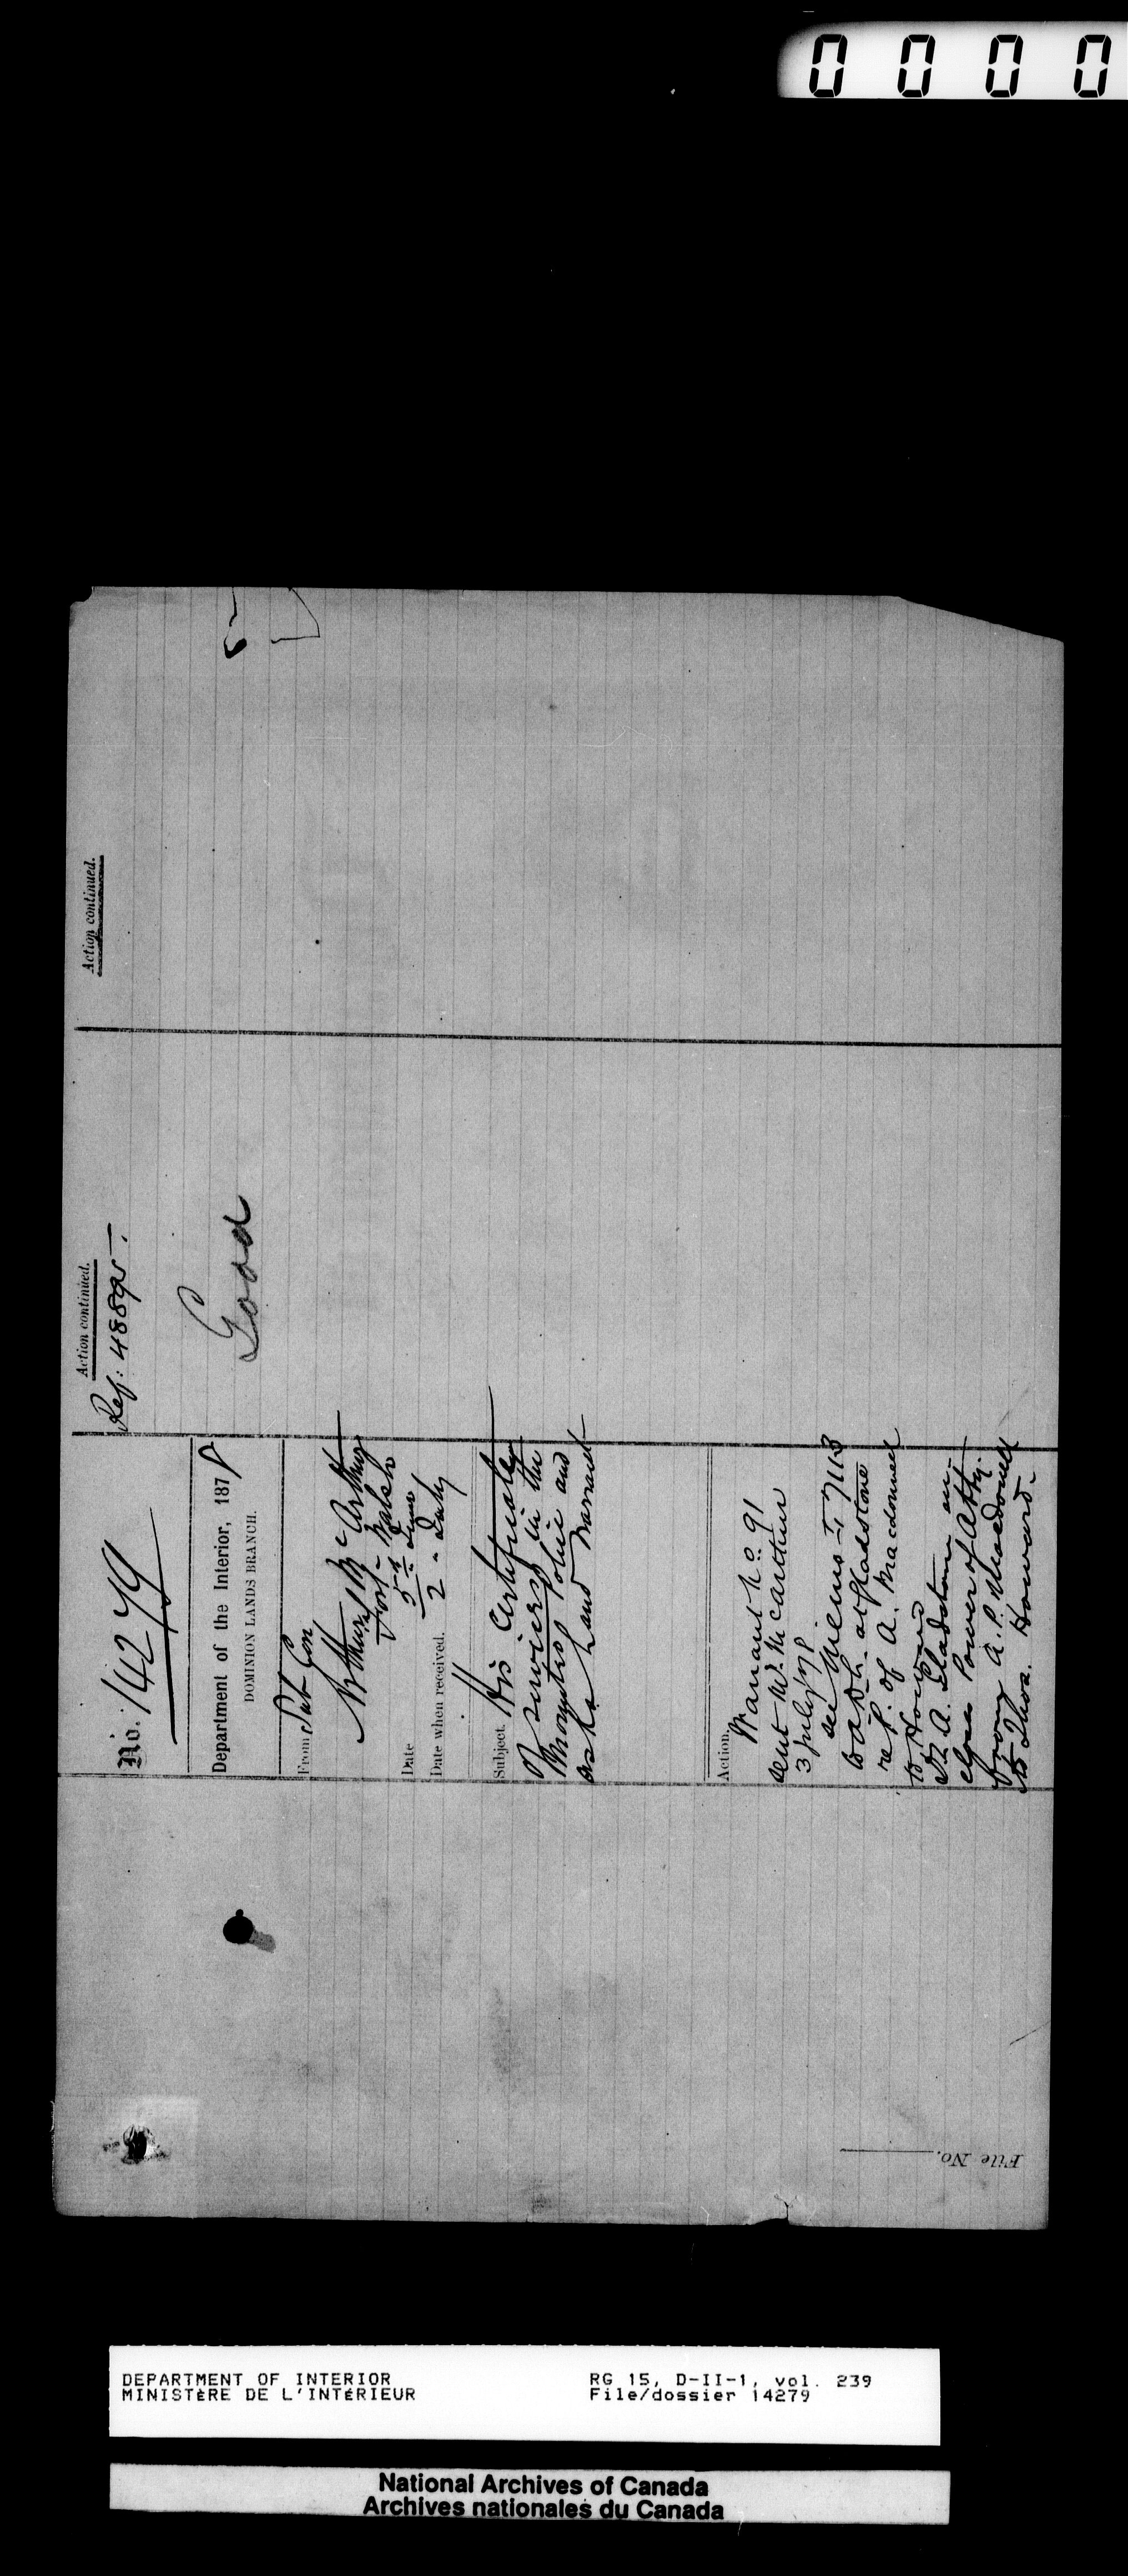 0 0 0 0
Action continued.
Action continued.
Ref: 48895
Good
No. 14279
Department of the Interior, 1878
DOMINION LANDS BRANCH.
From Sub Con
Arthur McArthur
Fort Walsh
Date 5th June
Date when received. 2 July
Subject. His Certificate
of services in the
Mounted Police and
asks Land Warrant
Action. Warrant No. 91
sent W. McArthur
3 July 78
see Memo
Gladstone
re P. of A. Macdonell
to Howard
A. Gladstone en-
close Power of Atty.
from A. P. Macdonell
to Thos. Howard.
File No.
DEPARTMENT OF INTERIOR
MINISTÈRE DE L'INTÉRIEUR
RG 15, D-II-1, vol. 239
File/dossier 14279
National Archives of Canada
Archives nationales du Canada